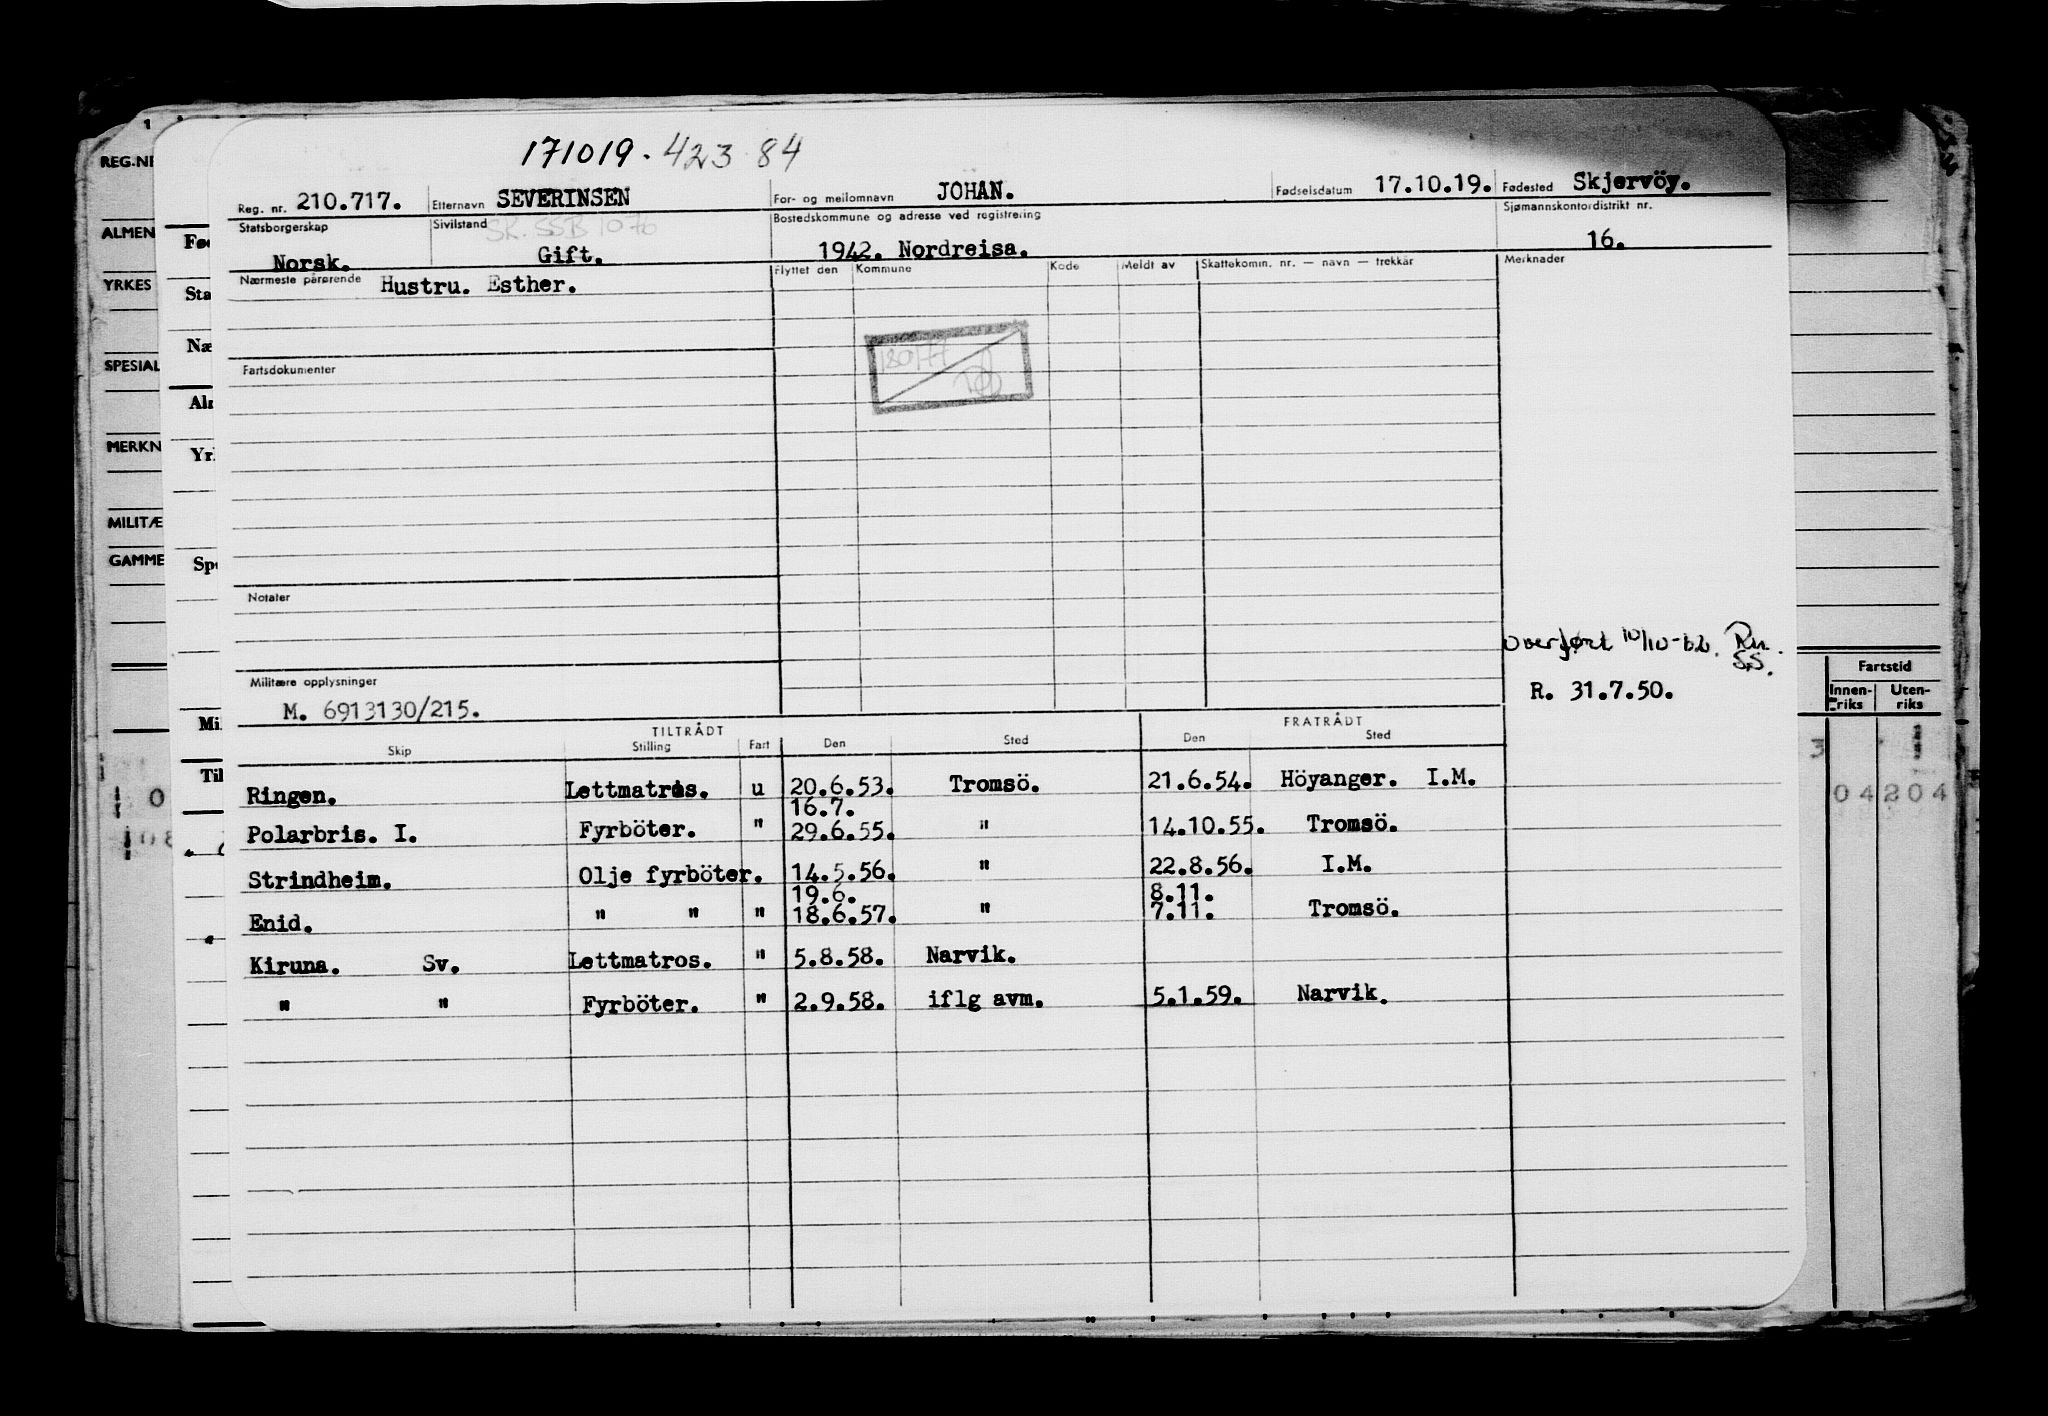 171019. 423 84
REG.NR
Reg. nr. 210.717. Etternavn SEVERINSEN For- og mellomnavn JOHAN. Fødselsdatum 17.10.19. Fødested Skjervöy.
Statsborgerskap Sivilstand Bostedskommune og adresse ved registrering Sjømannskontordistrikt nr.
SK. SSB 10 76
Norsk. Gift. 1942. Nordreisa. 16.
Nærmeste pårørende Hustru. Esther. Flyttet den Kommune Kode Meldt av Skattekomm. nr. — navn — trekkår Merknader
Fartsdokumenter
Notater
overført 10/10-62.
S.S.
Militære opplysninger
M. 6913130/215. R. 31.7.50.
TILTRÅDT FRATRÅDT
Skip Stilling Fart Den Sted Den Sted
Ringen. Lettmatros. u 20.6.53. Tromsö. 21.6.54. Höyanger. I.M.
16.7.
Polarbris. I. Fyrböter. " 29.6.55. " 14.10.55. Tromsö.
Strindheim. Olje fyrböter. 14.5.56. " 22.8.56. I.M.
19.6. 8.11.
Enid. " " " 18.6.57. " 7.11. Tromsö.
Kiruna. Sv. Lettmatros. " 5.8.58. Narvik.
" " Fyrböter. " 2.9.58. iflg avm. 5.1.59. Narvik.
ALMEN
YRKES
SPESIAL
MERKN
MILITÆ
GAMME
Fø
Sta
Næ
Al
Yr
Sp
Mi
Til
Fartstid
Innen-riks Uten-riks
3
0 4 2 0 4